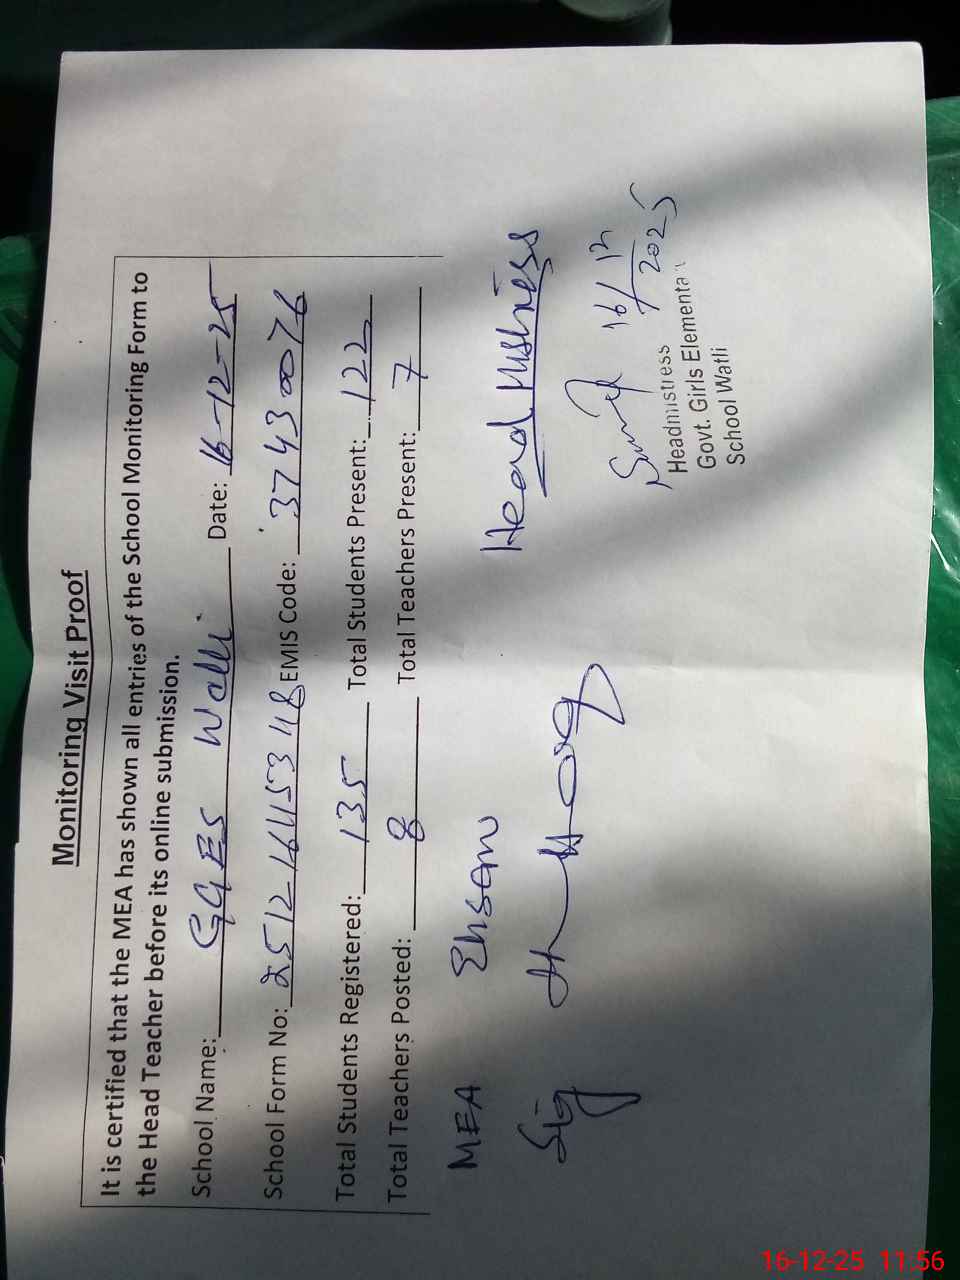 Monitoring Visit Proof
It is certified that the MEA has shown all entries of the School Monitoring Form to
the Head Teacher before its online submission.
School Name: GGES Watli Date: 16-12-25
School Form No: 251216415348 EMIS Code: 37430076
Total Students Registered: 135 Total Students Present: 122
Total Teachers Posted: 8 Total Teachers Present: 7
MEA Ehsan Head Mistress
Sig
16/12/2025
Headmistress
Govt. Girls Elementa
School Watli
16-12-25 11:56